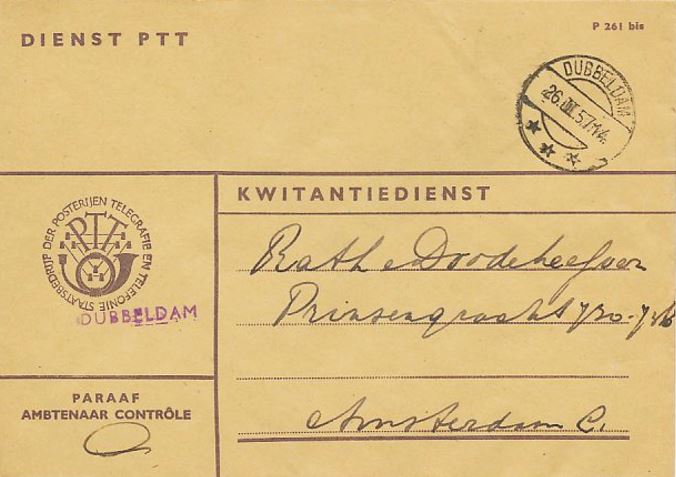 P 261 bis
DIENST PTT
DUBBELDAM
26.III.57.14
KWITANTIEDIENST
STAATSBEDRIJF DER POSTERIJEN TELEGRAFIE EN TELEFONIE
PTT
DUBBELDAM
Rath & Doodeheefver
Prinsengracht 730-736
Amsterdam C.
PARAAF
AMBTENAAR CONTRÔLE